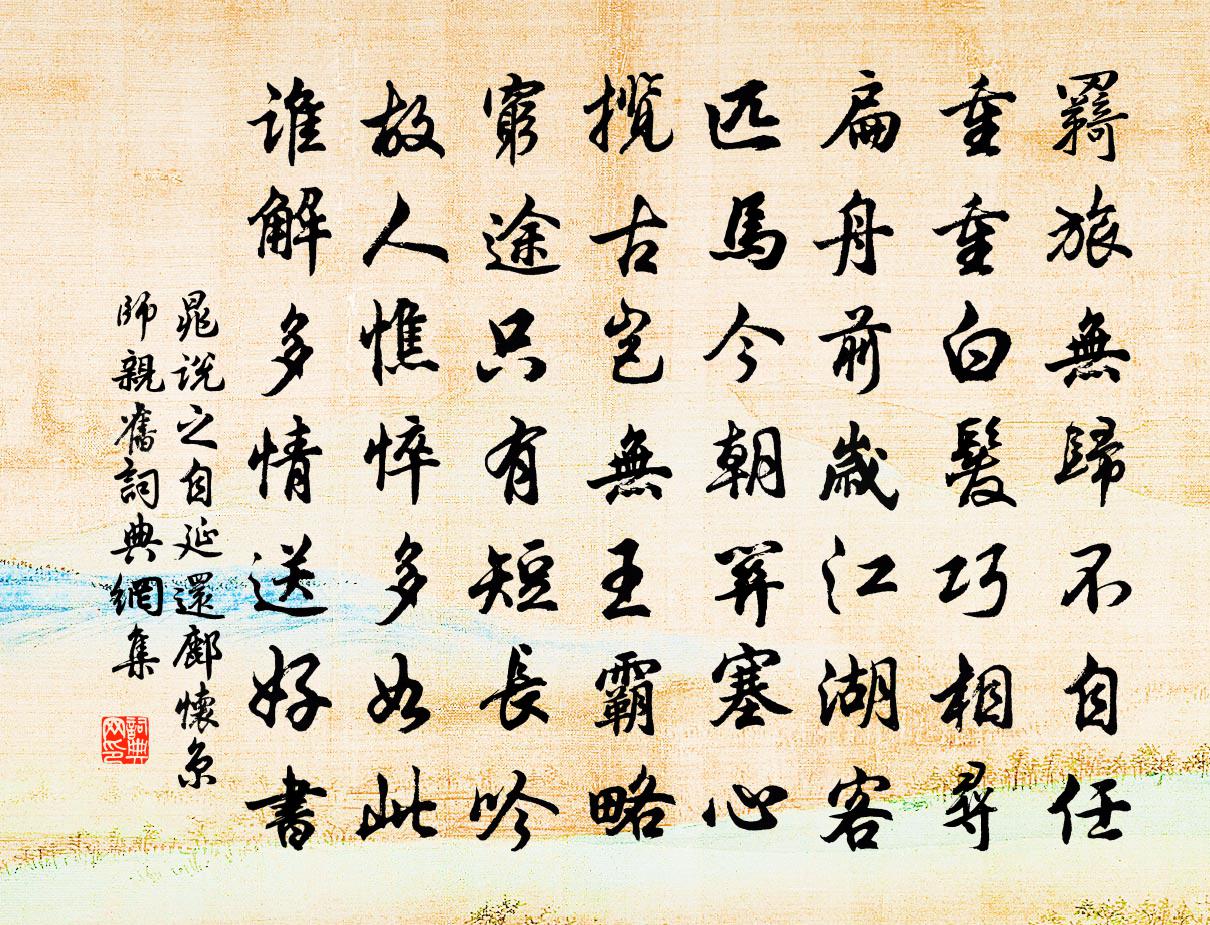 羇旅無歸不自任
重重白髮巧相尋
扁舟前歲江湖客
匹馬今朝關塞心
攬古豈無王霸略
窮途只有短長吟
故人憔悴多如此
誰解多情送好書
晁說之自延還鄜懷京
師親舊詞典網集
詞典网印